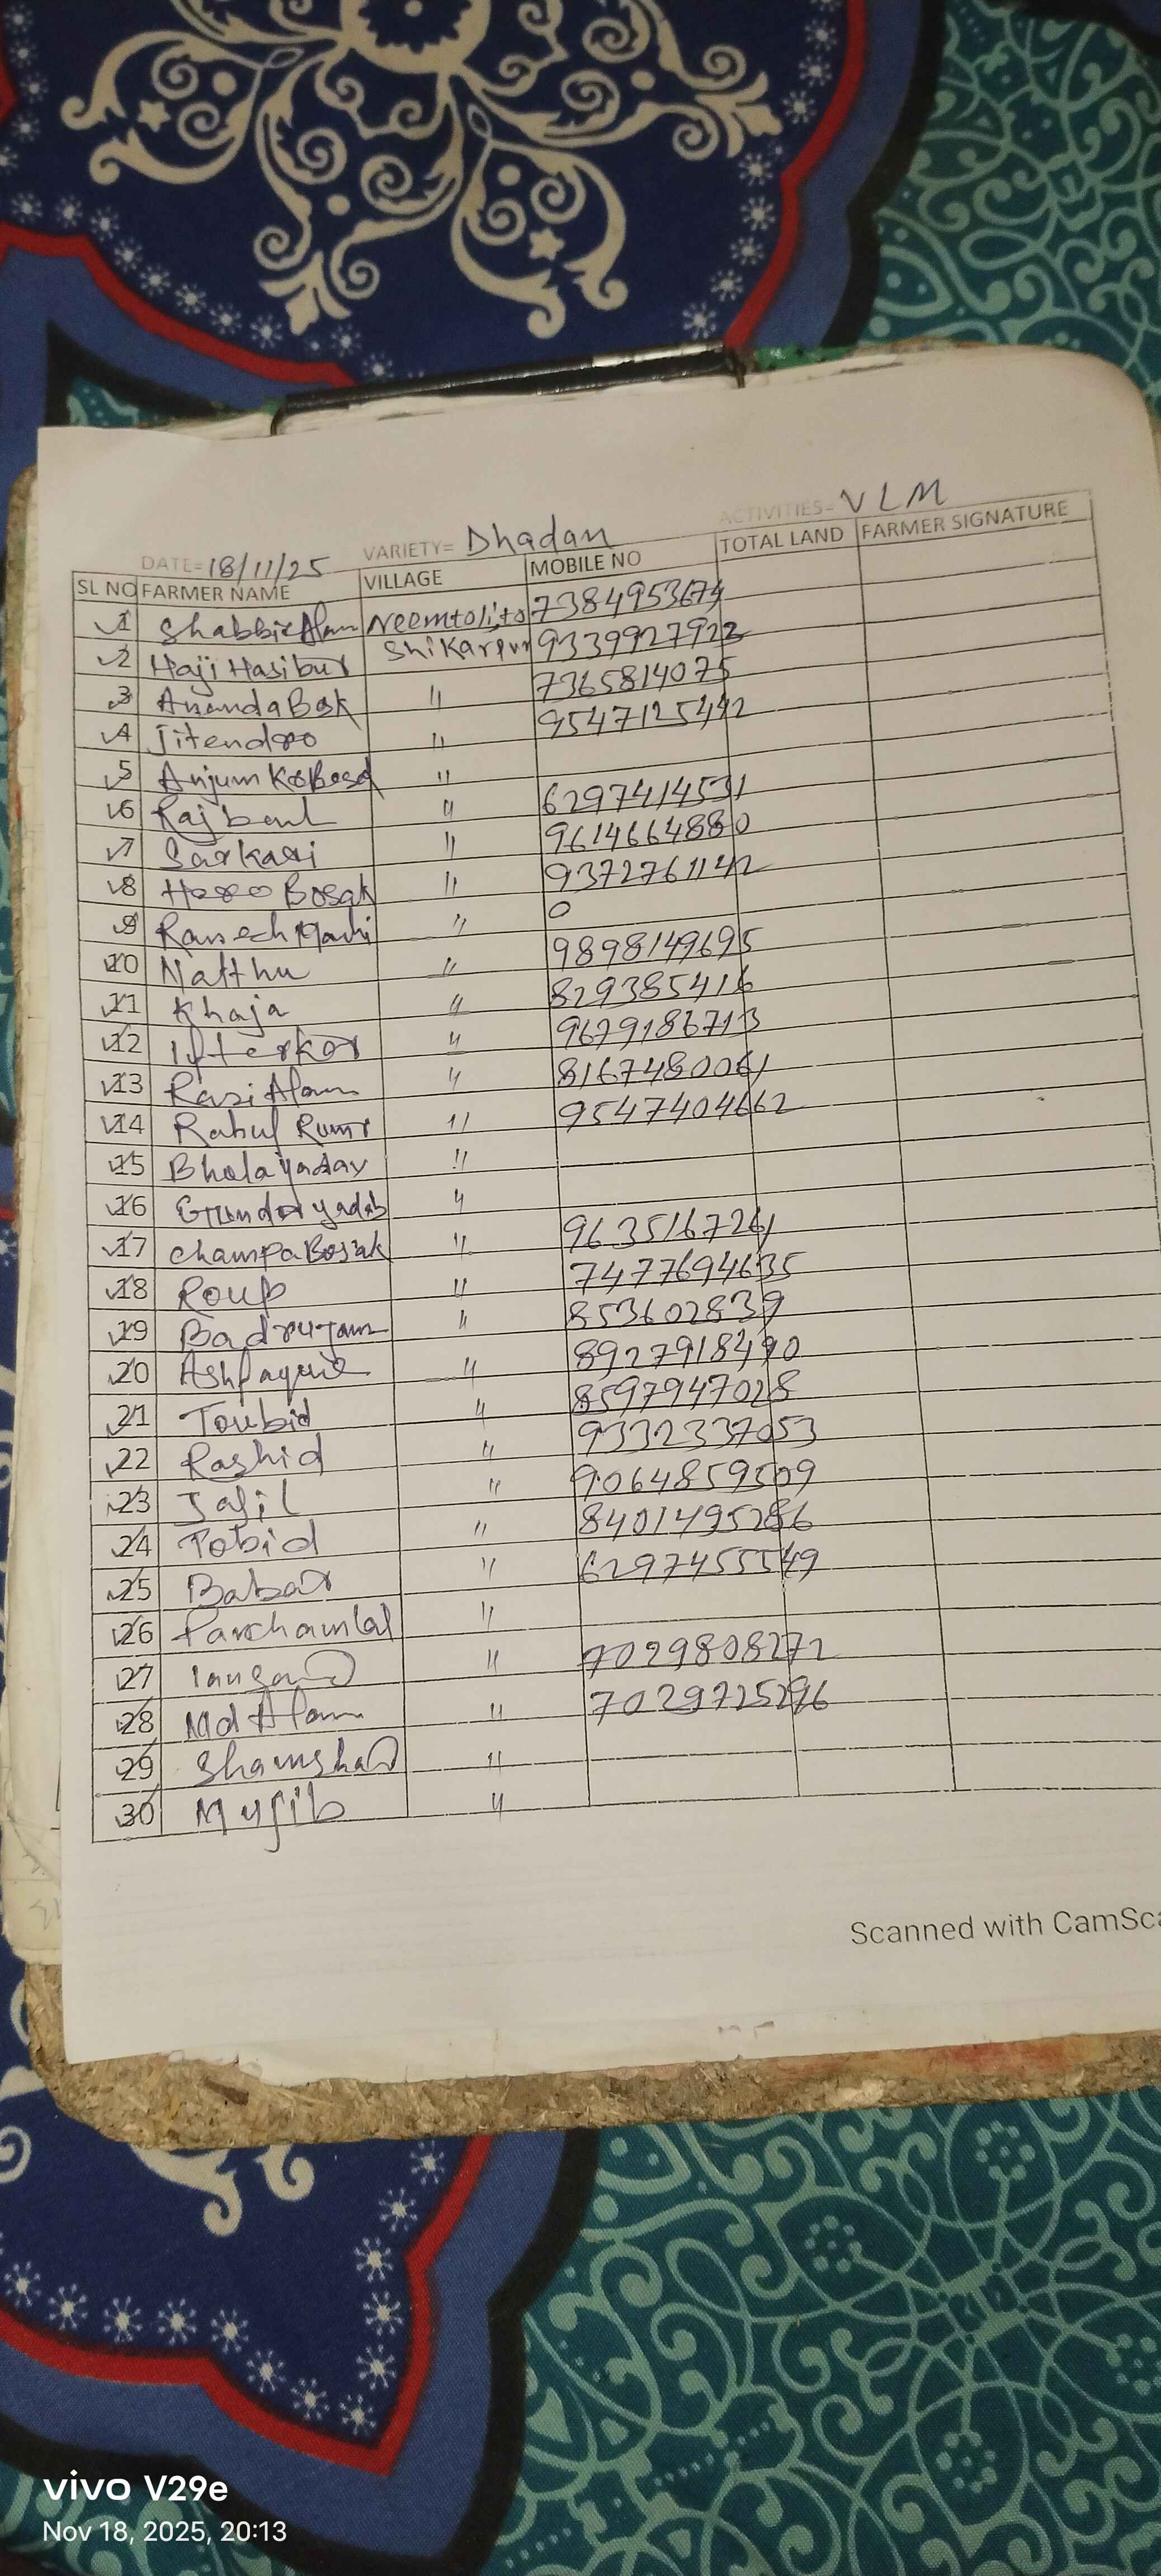 ACTIVITIES= VLM
DATE= 18/11/25 VARIETY= Dhadan
SL NO FARMER NAME VILLAGE MOBILE NO TOTAL LAND FARMER SIGNATURE
1 Shabbir Alam Neemtolito 7384953674
2 Haji Hasibur Shikarpur 9339927923
3 Ananda Bsk " 7365814075
4 Jitendro " 9547125442
5 Anjum "
6 Rajbant " 6297414531
7 Sarkari " 9614664880
8 Horo Bosak " 9372761142
9 " 0
10 Natthu " 9898149695
11 Khaja " 829385416
12 Ifterkar " 9679186713
13 Razi Alam " 8167480061
14 Rahul Kumr " 9547404662
15 Bhola yadav "
16 yadab "
17 champa Bosak " 9635167261
18 Roup " 7477694635
19 " 853602839
20 Ashfaque " 8927918490
21 Toubid " 8597947028
22 Rashid " 9332337053
23 Jalil " 9064859509
24 Tobid " 8401495286
25 Babar " 6297455549
26 Panchamlal "
27 " 7029808272
28 Md Alam " 7029725296
29 Shamshad "
30 Mujib "
Scanned with CamSca
vivo V29e
Nov 18, 2025, 20:13